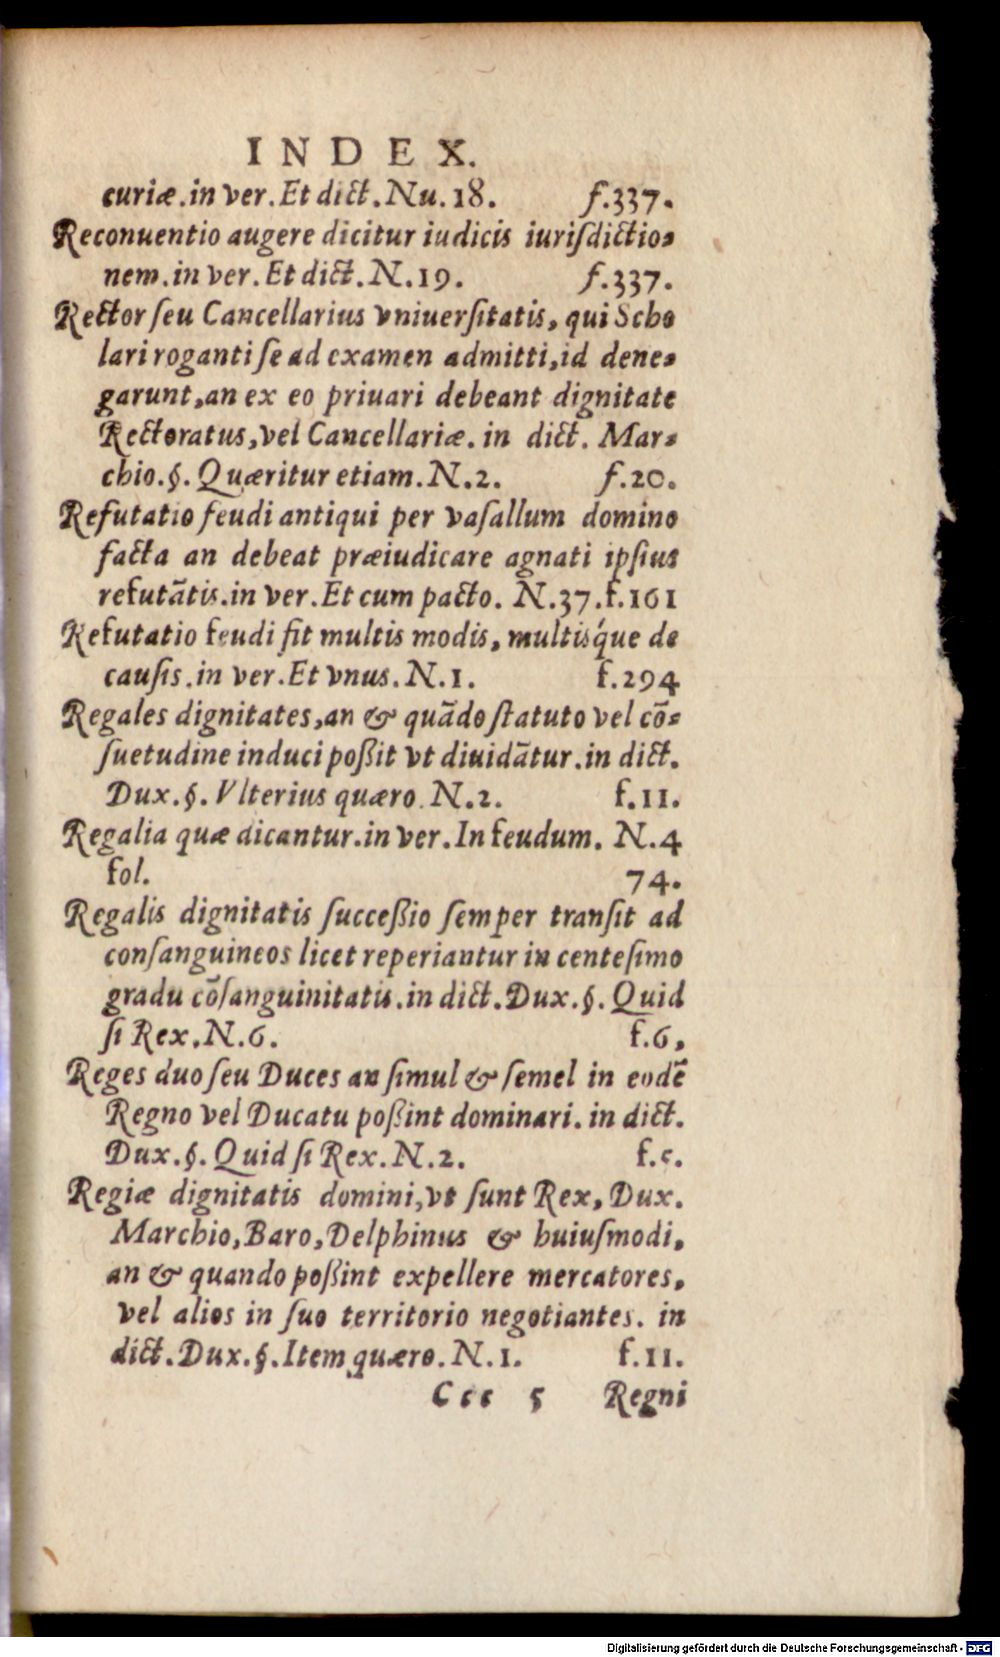 INDEX.
curiæ.in ver.Et dict.Nu.18. f.337.
Reconuentio augere dicitur iudicis iuriſdictio⸗
nem.in ver.Et dict.N.19. f.337.
Rector ſeu Cancellarius vniuerſitatis, qui Scho
lari roganti ſe ad examen admitti,id dene⸗
garunt,an ex eo priuari debeant dignitate
Rectoratus,vel Cancellariæ.in dict. Mar⸗
chio.§.Quæritur etiam.N.2. f.20.
Refutatio feudi antiqui per vaſallum domino
facta an debeat præiudicare agnati ipſius
refutãtis.in ver.Et cum pacto. N.37.f.161
Refutatio feudi fit multis modis, multisq́ue de
cauſis.in ver.Et vnus.N.1. f.294
Regales dignitates,an & quãdo ſtatuto vel cõ⸗
ſuetudine induci poßit vt diuidãtur.in dict.
Dux.§.Vlterius quæro.N.2. f.11.
Regalia quæ dicantur.in ver.In feudum. N.4
fol. 74.
Regalis dignitatis ſucceßio ſemper tranſit ad
conſanguineos licet reperiantur in centeſimo
gradu cõſanguinitatis.in dict.Dux.§.Quid
ſi Rex.N.6. f.6,
Reges duo ſeu Duces an ſimul & ſemel in eodẽ
Regno vel Ducatu poßint dominari.in dict.
Dux.§.Quid ſi Rex.N.2. f.5.
Regiæ dignitatis domini,vt ſunt Rex, Dux.
Marchio,Baro,Delphinus & huiuſmodi,
an & quando poßint expellere mercatores,
vel alios in ſuo territorio negotiantes. in
dict.Dux.§.Item quæro.N.1. f.11.
Ccc 5 Regni
Digitalisierung gefördert durch die Deutsche Forschungsgemeinschaft - DFG